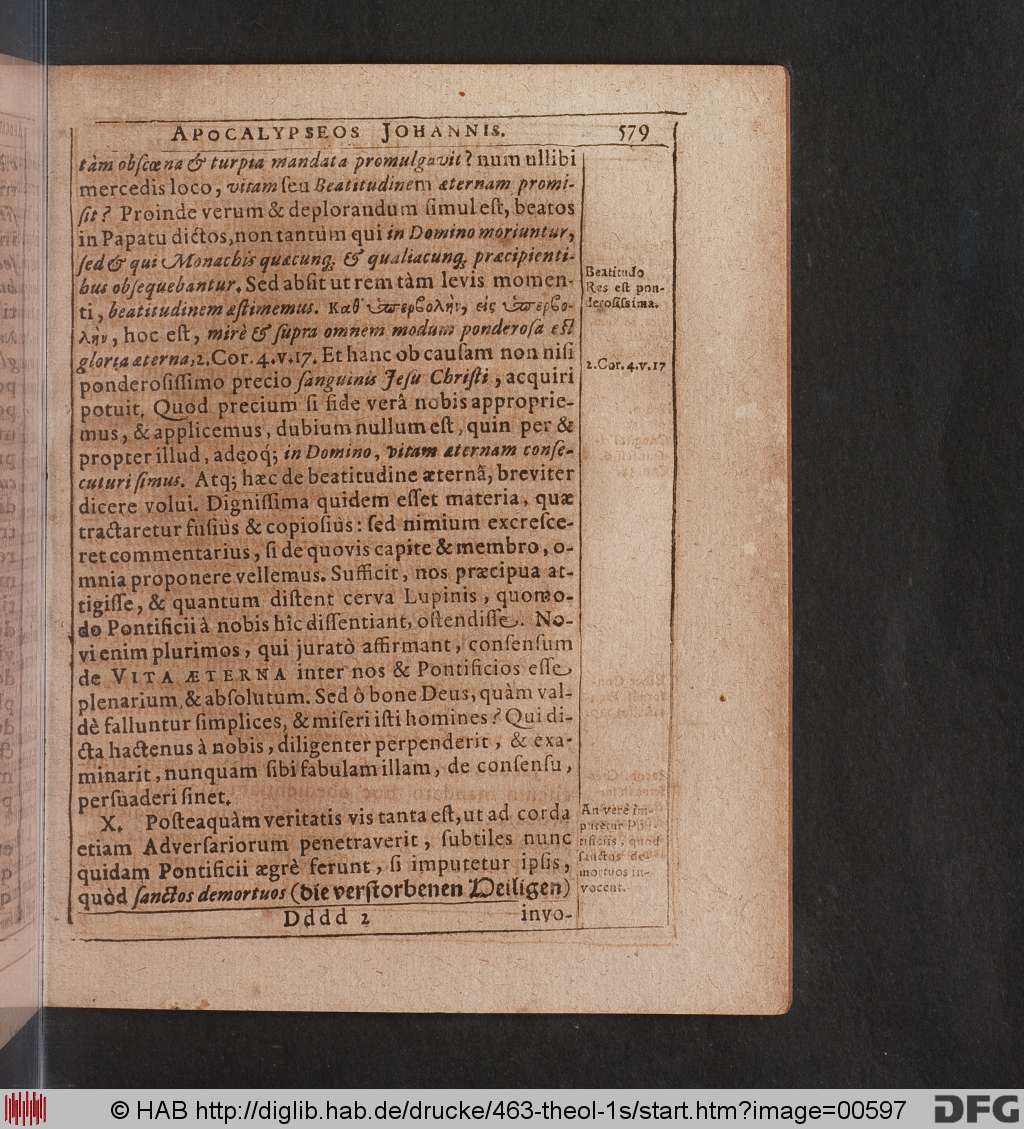 APOCALYPSEOS JOHANNIS. 579
tàm obſcœna & turpia mandata promulgavit? num ullibi
mercedis loco, vitam ſeu Beatitudinem æternam promi-
ſit? Proinde verum & deplorandum ſimul eſt, beatos
in Papatu dictos, non tantùm qui in Domino moriuntur,
ſed & qui Monachis quæcunq; & qualiacunq; præcipienti-
bus obſequebantur. Sed abſit ut rem tàm levis momen-
ti, beatitudinem æſtimemus. Καθ᾽ ὑπερβολὴν, εἰς ὑπερβο-
λὴν, hoc eſt, mirè & ſupra omnem modum ponderoſa eſt
gloria æterna, 2. Cor. 4. v. 17. Et hanc ob cauſam non niſi
ponderoſiſſimo precio ſanguinis Jeſu Chriſti, acquiri
potuit. Quod precium ſi fide verâ nobis approprie-
mus, & applicemus, dubium nullum eſt, quin per &
propter illud, adeoq́; in Domino, vitam æternam conſe-
cuturi ſimus. Atq; hæc de beatitudine æternâ, breviter
dicere volui. Digniſſima quidem eſſet materia, quæ
tractaretur fuſiùs & copioſiùs: ſed nimium excreſce-
ret commentarius, ſi de quovis capite & membro, o-
mnia proponere vellemus. Sufficit, nos præcipua at-
tigiſſe, & quantum diſtent cerva Lupinis, quomo-
do Pontificii à nobis hîc diſſentiant, oſtendiſſe. No-
vi enim plurimos, qui juratò affirmant, conſenſum
de VITA ÆTERNA inter nos & Pontificios eſſe
plenarium & abſolutum. Sed ô bone Deus, quàm val-
dè falluntur ſimplices, & miſeri iſti homines? Qui di-
cta hactenus à nobis, diligenter perpenderit, & exa-
minarit, nunquam ſibi fabulam illam, de conſenſu,
perſuaderi ſinet.
X. Poſteaquàm veritatis vis tanta eſt, ut ad corda
etiam Adverſariorum penetraverit, ſubtiles nunc
quidam Pontificii ægrè ferunt, ſi imputetur ipſis,
quòd ſanctos demortuos (die verſtorbenen Heiligen)
Dddd 2 invo-
Beatitudo
Res eſt pon-
deroſiſsima.
2. Cor. 4. v. 17
An verè im-
putetur Pon-
tificiis, quod
ſanctos de-
mortuos in-
vocent.
© HAB http://diglib.hab.de/drucke/463-theol-1s/start.htm?image=00597
DFG